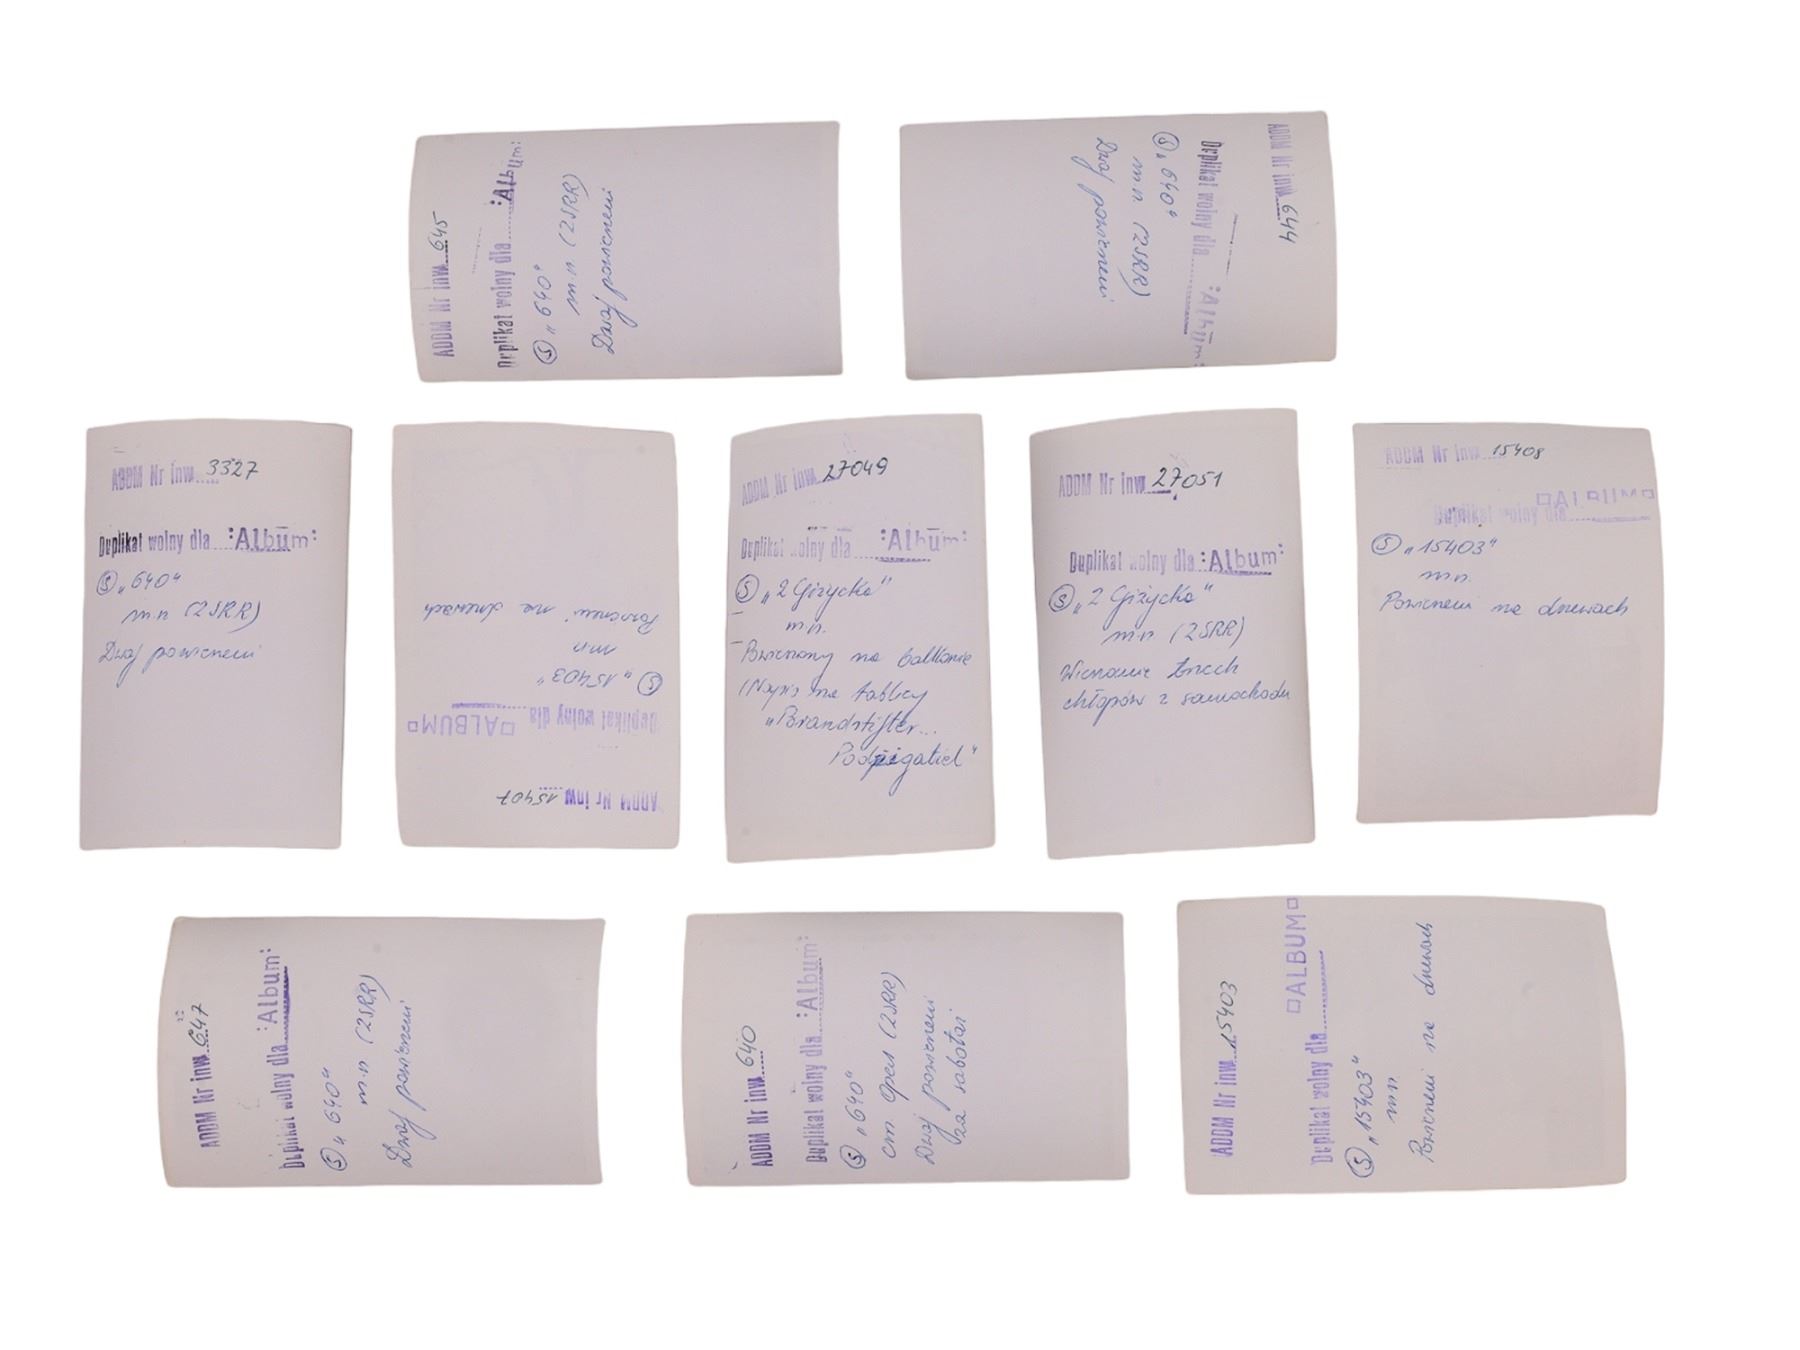 ADDM Nr inw. 645
Duplikat wolny dla :Album:
Ⓢ „640“
m.n. (ZSRR)
Dwaj powieszeni
ADDM Nr inw. 644
Duplikat wolny dla :Album:
Ⓢ „640“
m.n. (ZSRR)
Dwaj powieszeni
ADDM Nr inw. 3327
Duplikat wolny dla :Album:
Ⓢ „640“
m.n (ZSRR)
Dwaj powieszeni
ADDM Nr inw. 15407
Duplikat wolny dla □ALBUM□
Ⓢ „15403“
m.n
Powieszeni na drzewach
ADDM Nr inw. 27049
Duplikat wolny dla :Album:
Ⓢ „Z Giżycka“
m.n.
Powieszony na balkonie
(Napis na tablicy
„Brandstifter...
Podżigatiel“
ADDM Nr inw. 27051
Duplikat wolny dla :Album:
Ⓢ „Z Giżycka“
m.n (ZSRR)
Wieszanie trzech
chłopów z samochodu
ADDM Nr inw. 15408
Duplikat wolny dla □ALBUM□
Ⓢ „15403“
m.n.
Powieszeni na drzewach
ADDM Nr inw. 647
Duplikat wolny dla :Album:
Ⓢ „640“
m.n (ZSRR)
Dwaj powieszeni
ADDM Nr inw. 640
Duplikat wolny dla :Album:
Ⓢ „640“
(ZSRR)
Dwaj powieszeni
za sabotaż
ADDM Nr inw. 15403
Duplikat wolny dla □ALBUM□
Ⓢ „15403“
m.n
Powieszeni na drzewach